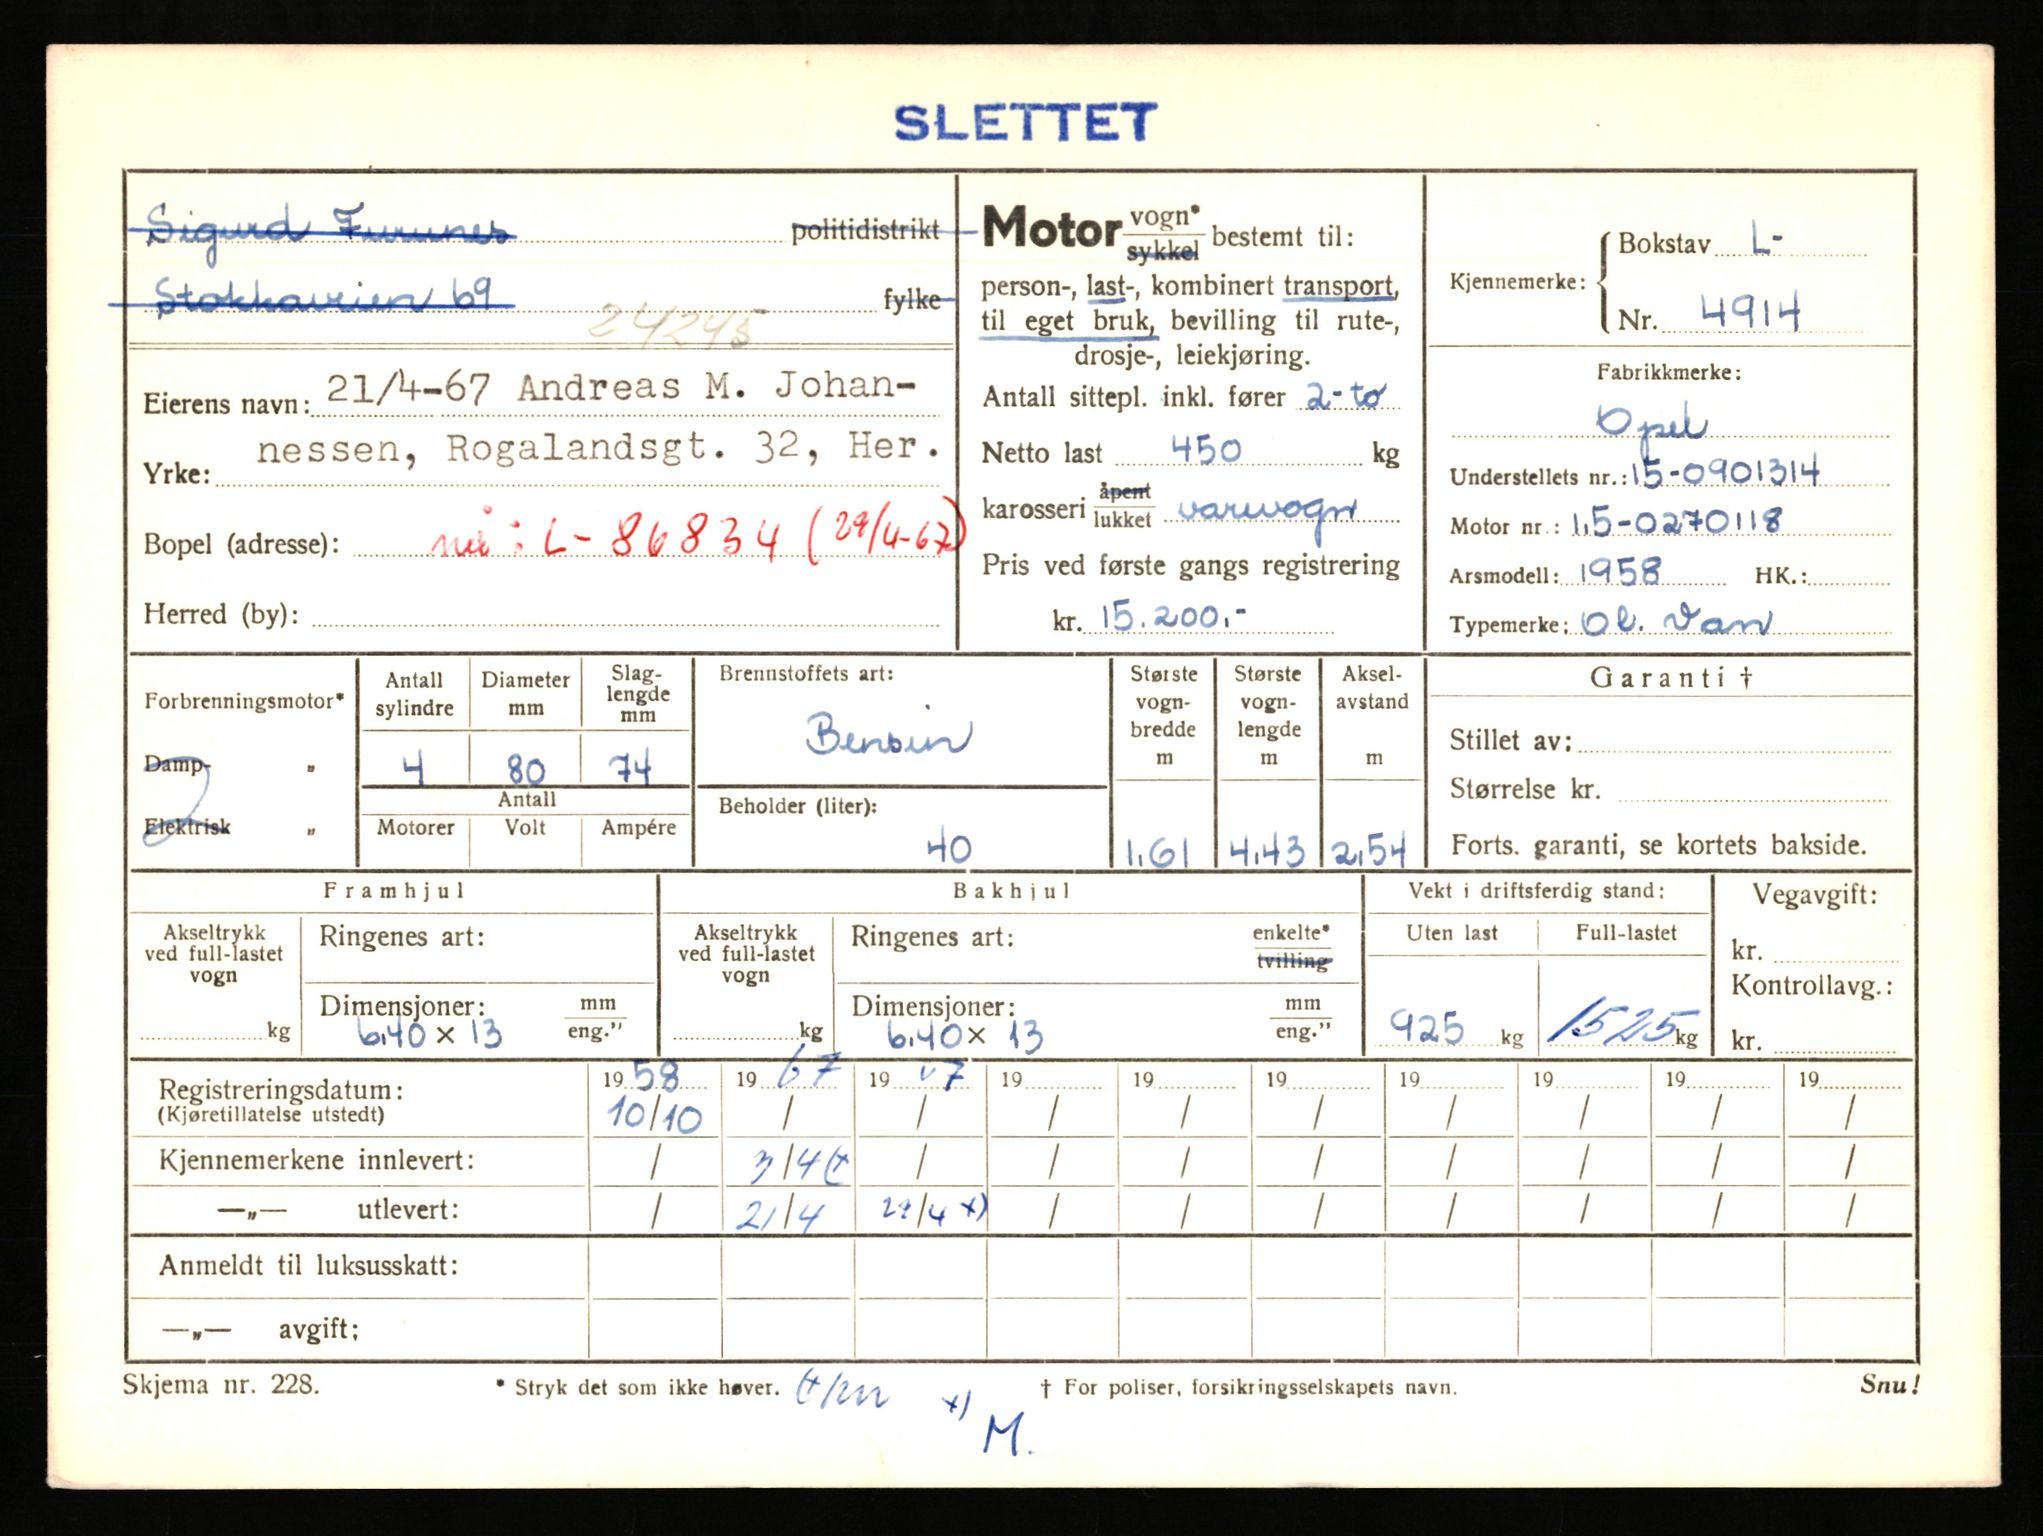 SLETTET
Sigurd Furunes politidistrikt
Stokkaveien 69 fylke
24245
Eierens navn: 21/4-67 Andreas M. Johan-
Yrke: nessen, Rogalandsgt. 32, Her.
Bopel (adresse): nå: L-86834 (29/4-67)
Herred (by):
Motor vogn* sykkel bestemt til:
person-, last-, kombinert transport,
til eget bruk, bevilling til rute-,
drosje-, leiekjøring.
Antall sittepl. inkl. fører 2-to
Netto last 450 kg
karosseri åpent lukket varevogn
Pris ved første gangs registrering
kr. 15.200,-
Kjennemerke: Bokstav L-
Nr. 4914
Fabrikkmerke:
Opel
Understellets nr.: 15-0901314
Motor nr.: 1,5-0270118
Arsmodell: 1958 HK.:
Typemerke: Ol. Van
Forbrenningsmotor*
Damp- „
Elektrisk „
Antall sylindre Diameter mm Slag-lengde mm
4 80 74
Antall
Motorer Volt Ampére
Brennstoffets art:
Bensin
Beholder (liter):
40
Største vogn-bredde m 1,61
Største vogn-lengde m 4,43
Aksel-avstand m 2,54
Garanti †
Stillet av:
Størrelse kr.
Forts. garanti, se kortets bakside.
Framhjul
Akseltrykk ved full-lastet vogn
kg
Ringenes art:
Dimensjoner: mm eng.”
6,40 x 13
Bakhjul
Akseltrykk ved full-lastet vogn
kg
Ringenes art: enkelte* tvilling
Dimensjoner: mm eng.”
6,40 x 13
Vekt i driftsferdig stand:
Uten last Full-lastet
925 kg 1525 kg
Vegavgift:
kr.
Kontrollavg.:
kr.
Registreringsdatum: 1958 1967 1967 19 19 19 19 19 19 19
(Kjøretillatelse utstedt) 10/10 / / / / / / / / /
Kjennemerkene innlevert: / 3/4 (+ / / / / / / / /
—„— utlevert: / 21/4 29/4 x) / / / / / / /
Anmeldt til luksusskatt:
—„— avgift:
Skjema nr. 228. * Stryk det som ikke høver. † For poliser, forsikringsselskapets navn. Snu!
x) M.